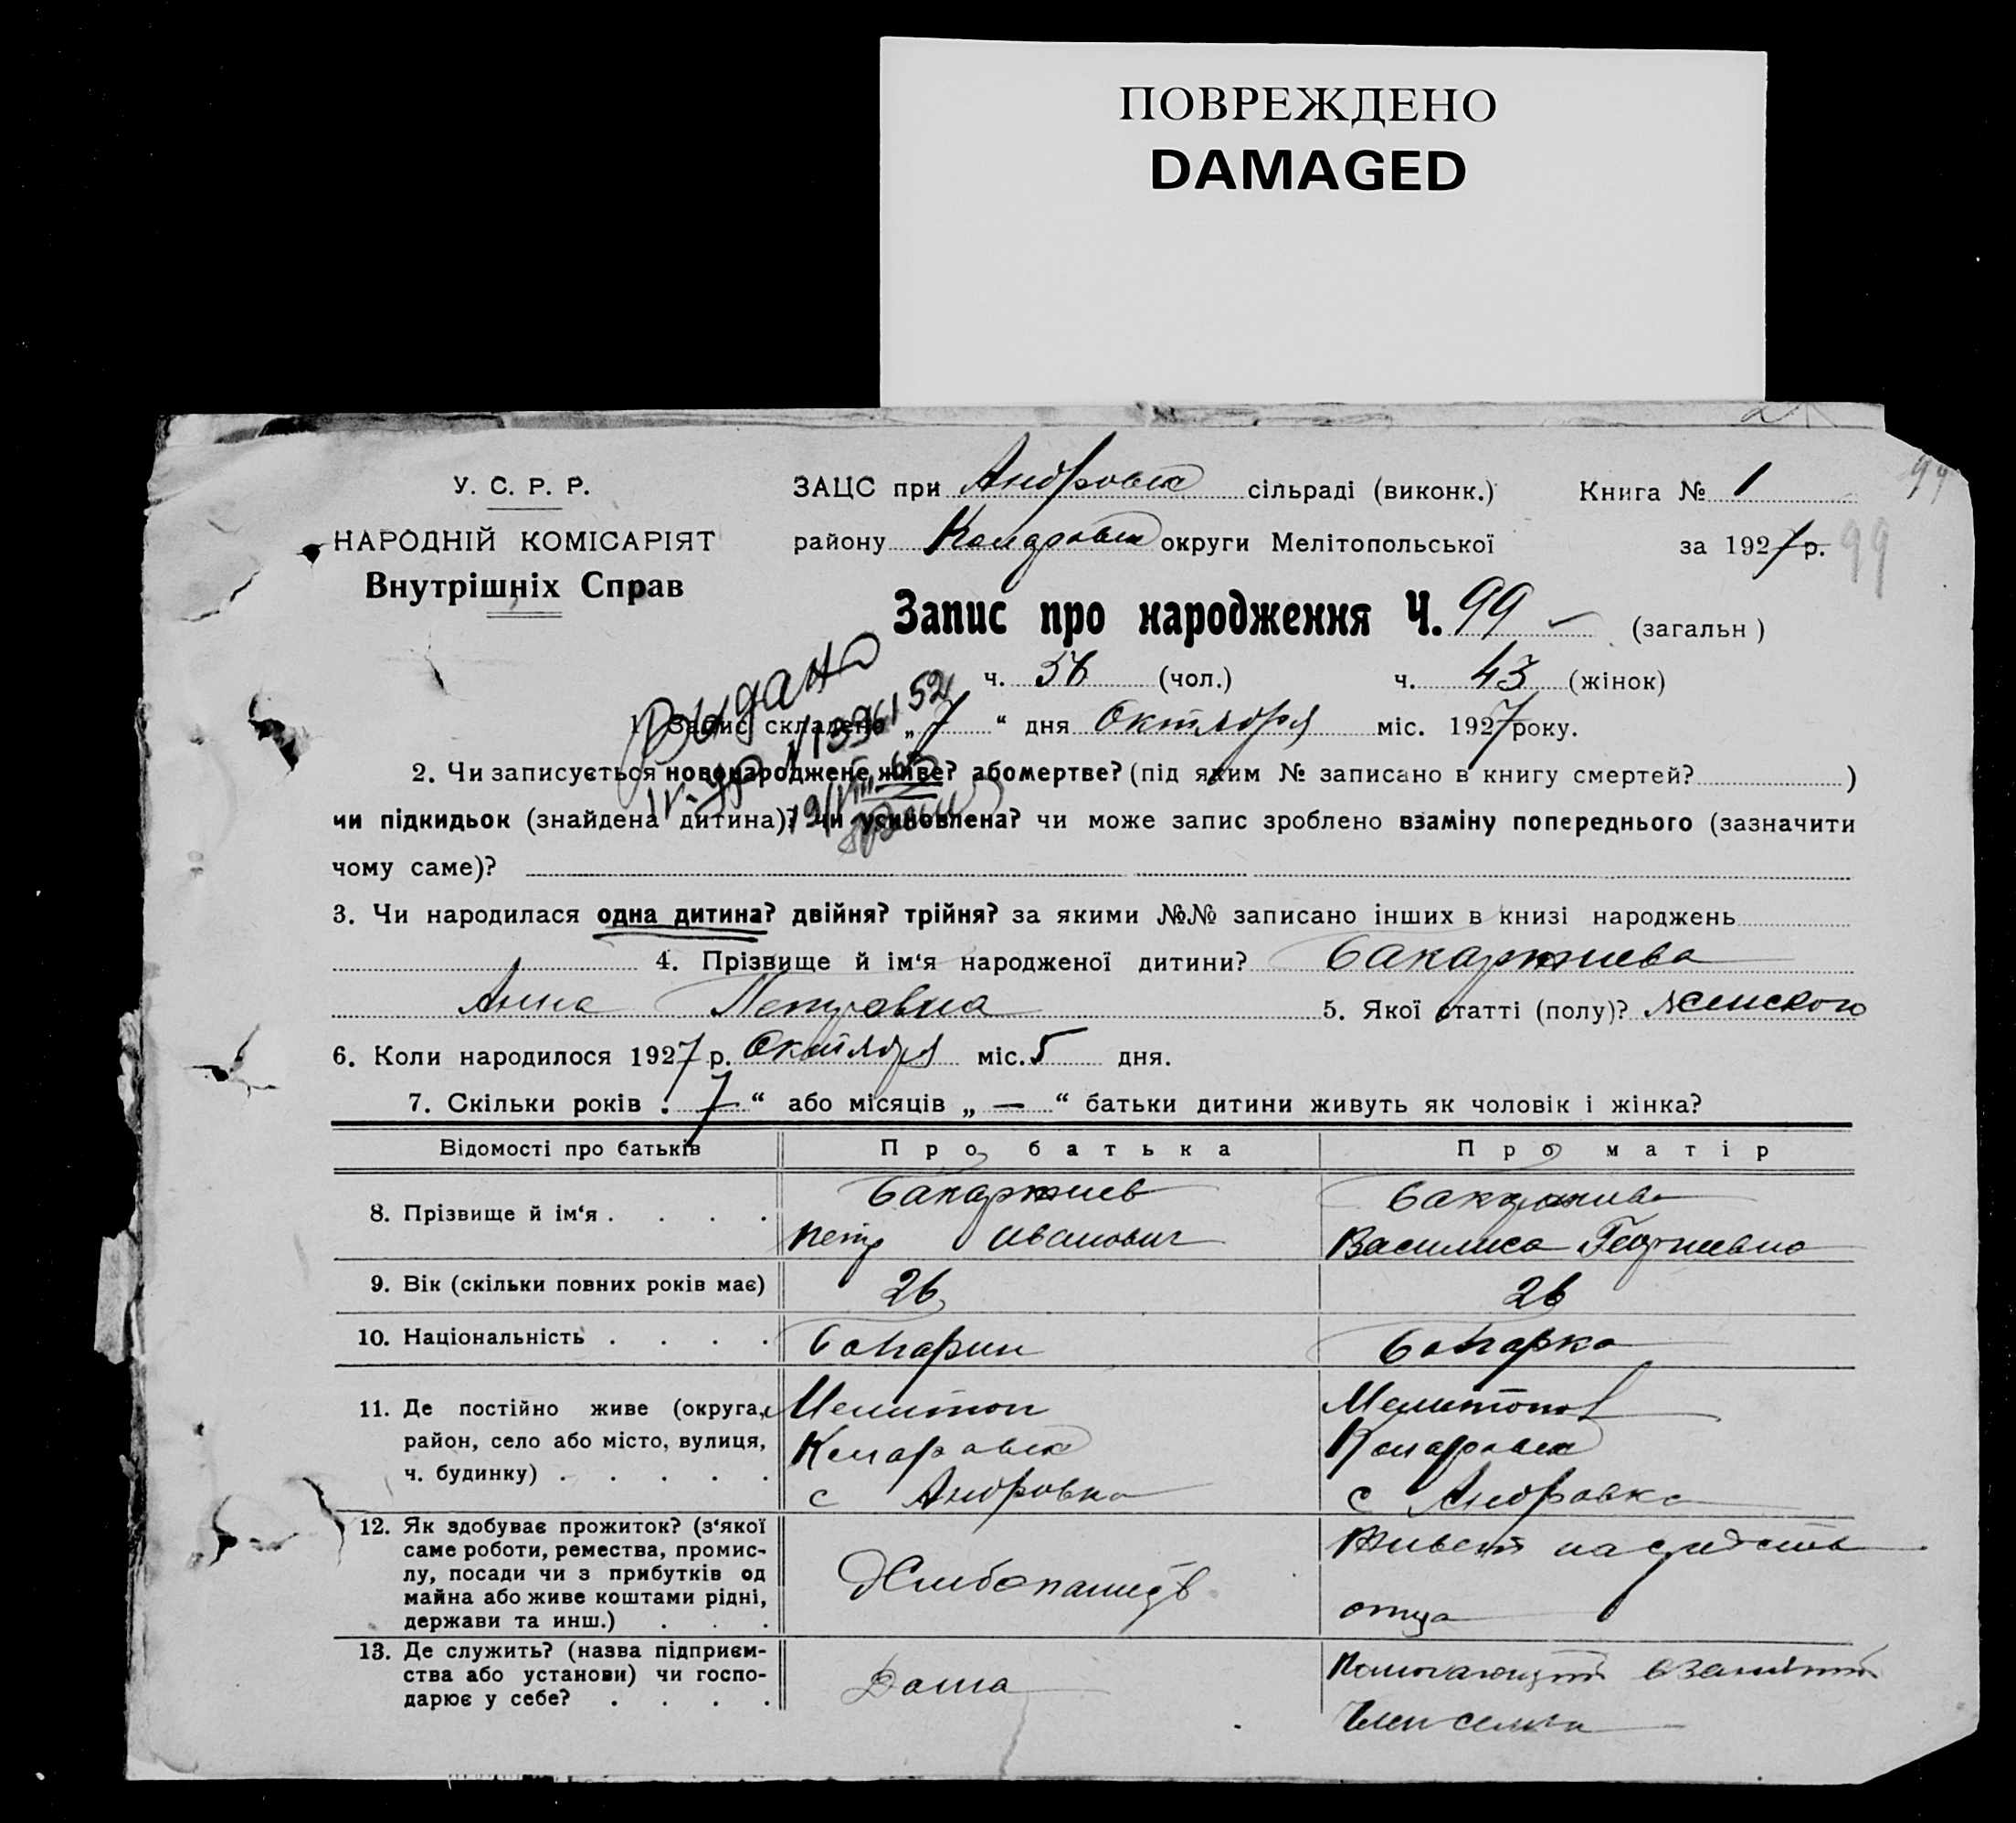 ПОВРЕЖДЕНО
DAMAGED
У. С. Р. Р.
НАРОДНІЙ КОМІСАРІЯТ
Внутрішніх Справ
ЗАЦС при Андровск сільраді (виконк.) Книга № 1
99
району округи Мелітопольської за 1927 р.
99
Запис про народження Ч. 99 (загальн)
ч. 56 (чол.) ч. 43 (жінок)
Видано
1. Запис складено „ 7 “ дня Октября міс. 1927 року.
2. Чи записується новонароджене живе? або мертве? (під яким № записано в книгу смертей? )
чи підкидьок (знайдена дитина)? чи усиновлена? чи може запис зроблено взаміну попереднього (зазначити
чому саме)?
3. Чи народилася одна дитина? двійня? трійня? за якими №№ записано інших в книзі народжень
4. Прізвище й ім‘я народженої дитини? Бакаржиева
Анна Петровна 5. Якої статті (полу)? женского
6. Коли народилося 1927 р. Октября міс. 5 дня.
7. Скільки років „ 7 “ або місяців „ — “ батьки дитини живуть як чоловік і жінка?
Відомості про батьків Про батька Про матір
8. Прізвище й ім‘я . . . . Бакаржиев Бакаржиева
Петр Иванович Василиса Георгиевна
9. Вік (скільки повних років має) 26 26
10. Національність . . . . Болгарин Болгарка
11. Де постійно живе (округа, Мелитоп Мелитопол
район, село або місто, вулиця,
ч. будинку) . . . . . с Андровка с Андровка
12. Як здобуває прожиток? (з‘якої
саме роботи, ремества, промис-
лу, посади чи з прибутків од
майна або живе коштами рідні,
держави та инш.) . . . Хлибопашед Живет на средства
отца
13. Де служить? (назва підприєм-
ства або установи) чи госпо-
дарює у себе? . . . . Дома
Член семьи